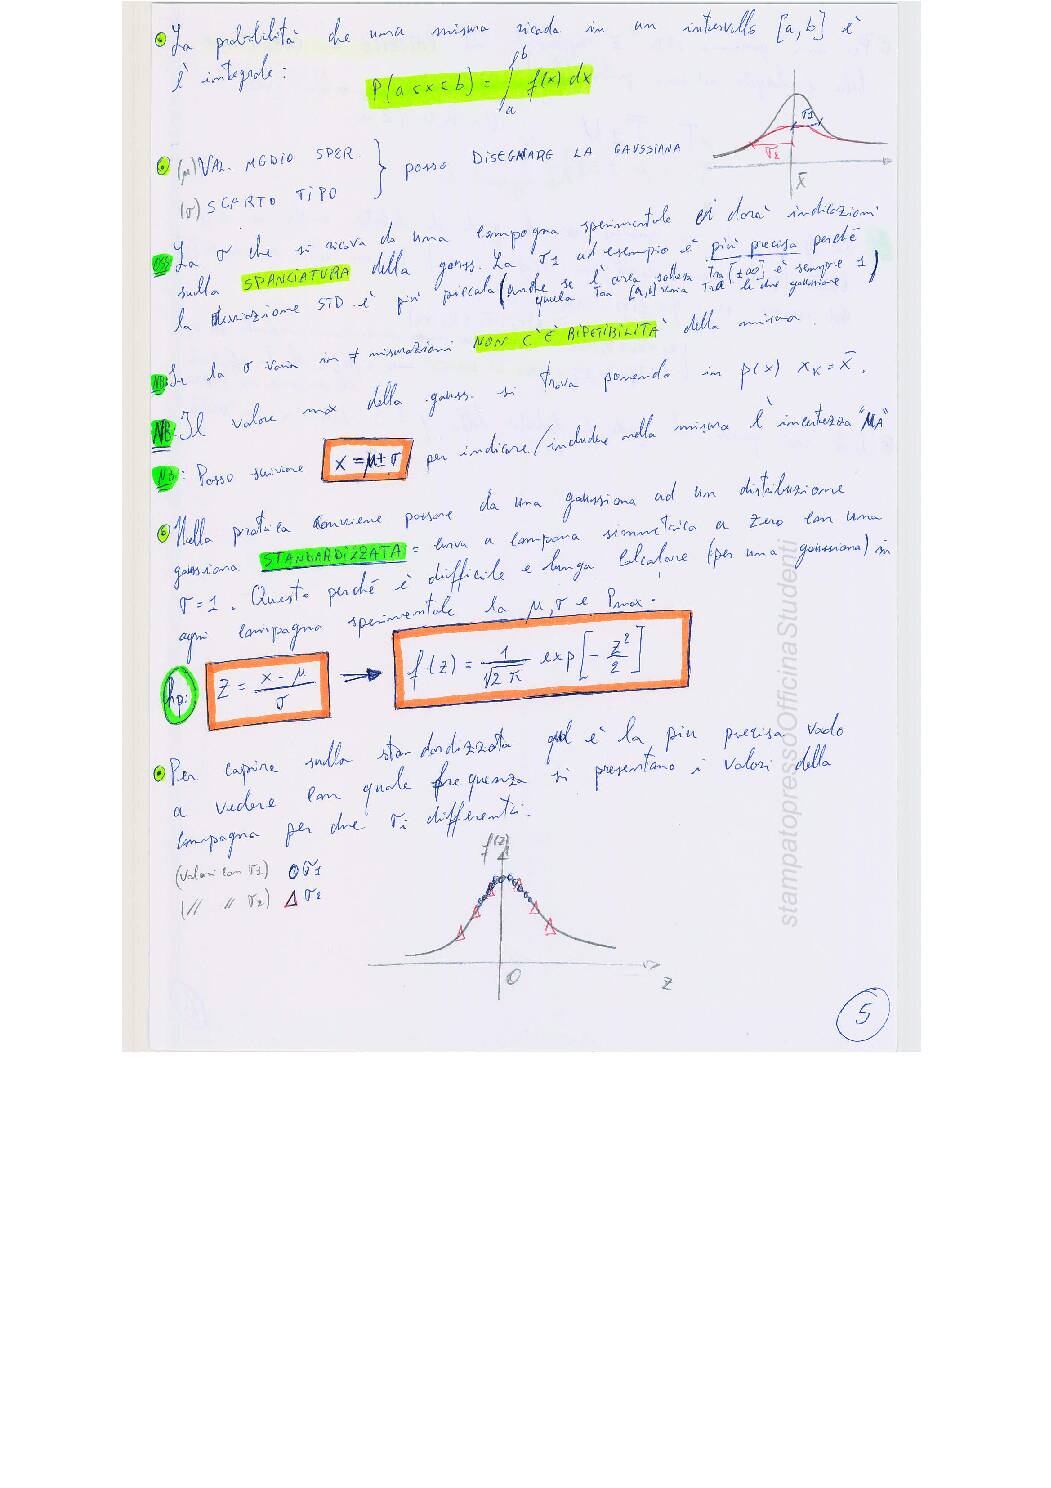 La probabilità che una misura ricada in un intervallo [a, b] è
l'integrale:
P(a≤x≤b) = ∫ₐᵇ f(x) dx
σ1
σ2
x̄
(μ) VAL. MEDIO SPER.
(σ) SCARTO TIPO
} posso DISEGNARE LA GAUSSIANA
OSS La σ che si ricava da una campagna sperimentale ci darà indicazioni
sulla SPANCIATURA della gauss. La σ1 ad esempio è più precisa perché
la deviazione STD. è più piccola (anche se l'area sottesa tra [±∞] è sempre 1)
quella tra [a,b] varia tra le due gaussiane
NB: Se la σ varia in ≠ misurazioni NON C'È RIPETIBILITÀ della misura.
NB: Il valore max della gauss. si trova ponendo in p(x) xₖ = x̄.
NB: Posso scrivere x = μ ± σ per indicare/includere nella misura l'incertezza "μA"
Nella pratica conviene passare da una gaussiana ad un distribuzione
gaussiana STANDARDIZZATA = curva a campana simmetrica a zero con una
σ = 1. Questo perché è difficile e lungo calcolare (per una gaussiana) in
ogni campagna sperimentale la μ, σ e Pmax.
hp: z = (x - μ)/σ → f(z) = 1/√2π exp[- z²/2]
Per capire sulla standardizzata qual è la più precisa vado
a vedere con quale frequenza si presentano i valori della
campagna per due σi differenti.
f(z)
(Valori con σ1) O σ1
(// // σ2) Δ σ2
0
z
5
stampatopressoOfficinaStudenti